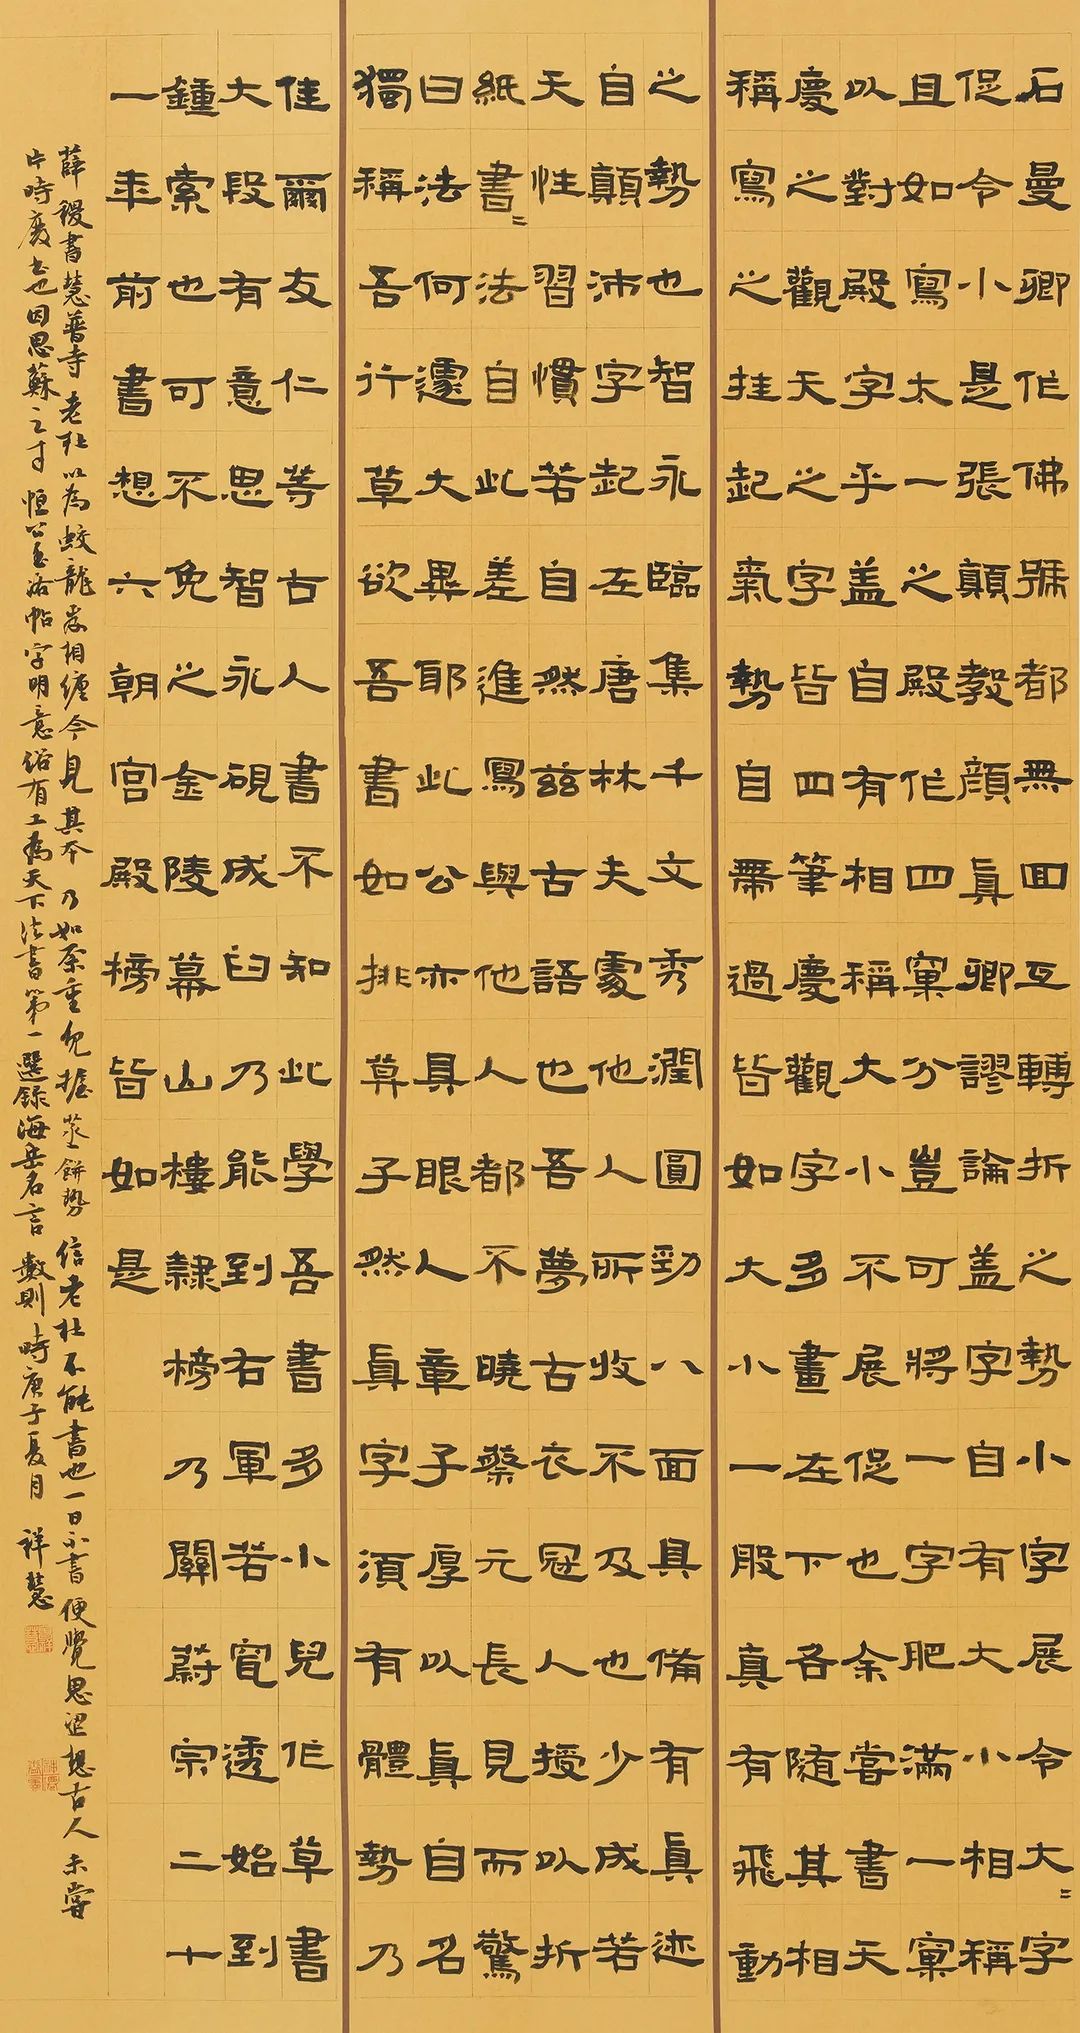 石曼卿作佛號都無回互轉折之勢小字展令大〻字
促令小是張顛教顏真卿謬論盖字自有大小相稱
且如寫太一之殿作四窠分豈可將一字肥滿一窠
以對殿字乎盖自有相稱大小不展促也余嘗書天
慶之觀天之字皆四筆慶觀字多畫在下各隨其相
稱寫之挂起氣勢自帶過皆如大小一般真有飛動
之勢也智永臨集千文秀潤圓勁八面具備有真迹
自顛沛字起在唐林夫處他人所收不及也少成若
天性習慣若自然茲古語也吾夢古衣冠人授以折
紙書〻法自此差進寫與他人都不曉蔡元長見而驚
曰法何遽大異耶此公亦具眼人章子厚以真自名
獨稱吾行草欲吾書如排算子然真字須有體勢乃
佳爾友仁等古人書不知此學吾書多小兒作草書
大段有意思智永硯成臼乃能到右軍若穿透始到
鍾索也可不免之金陵幕山樓隸榜乃關蔚宗二十
一年前書想六朝宮殿榜皆如是
薛稷書慧普寺老杜以為蛟龍岌相纏今見其本乃如奈重兒握蒸餅勢信老杜不能書也一日不書便覺思澀想古人未嘗
片時廢書也因思蘇之才恒公至洛帖字明意俗有工為天下法書第一選錄海岳名言數則時庚子夏月祥慧